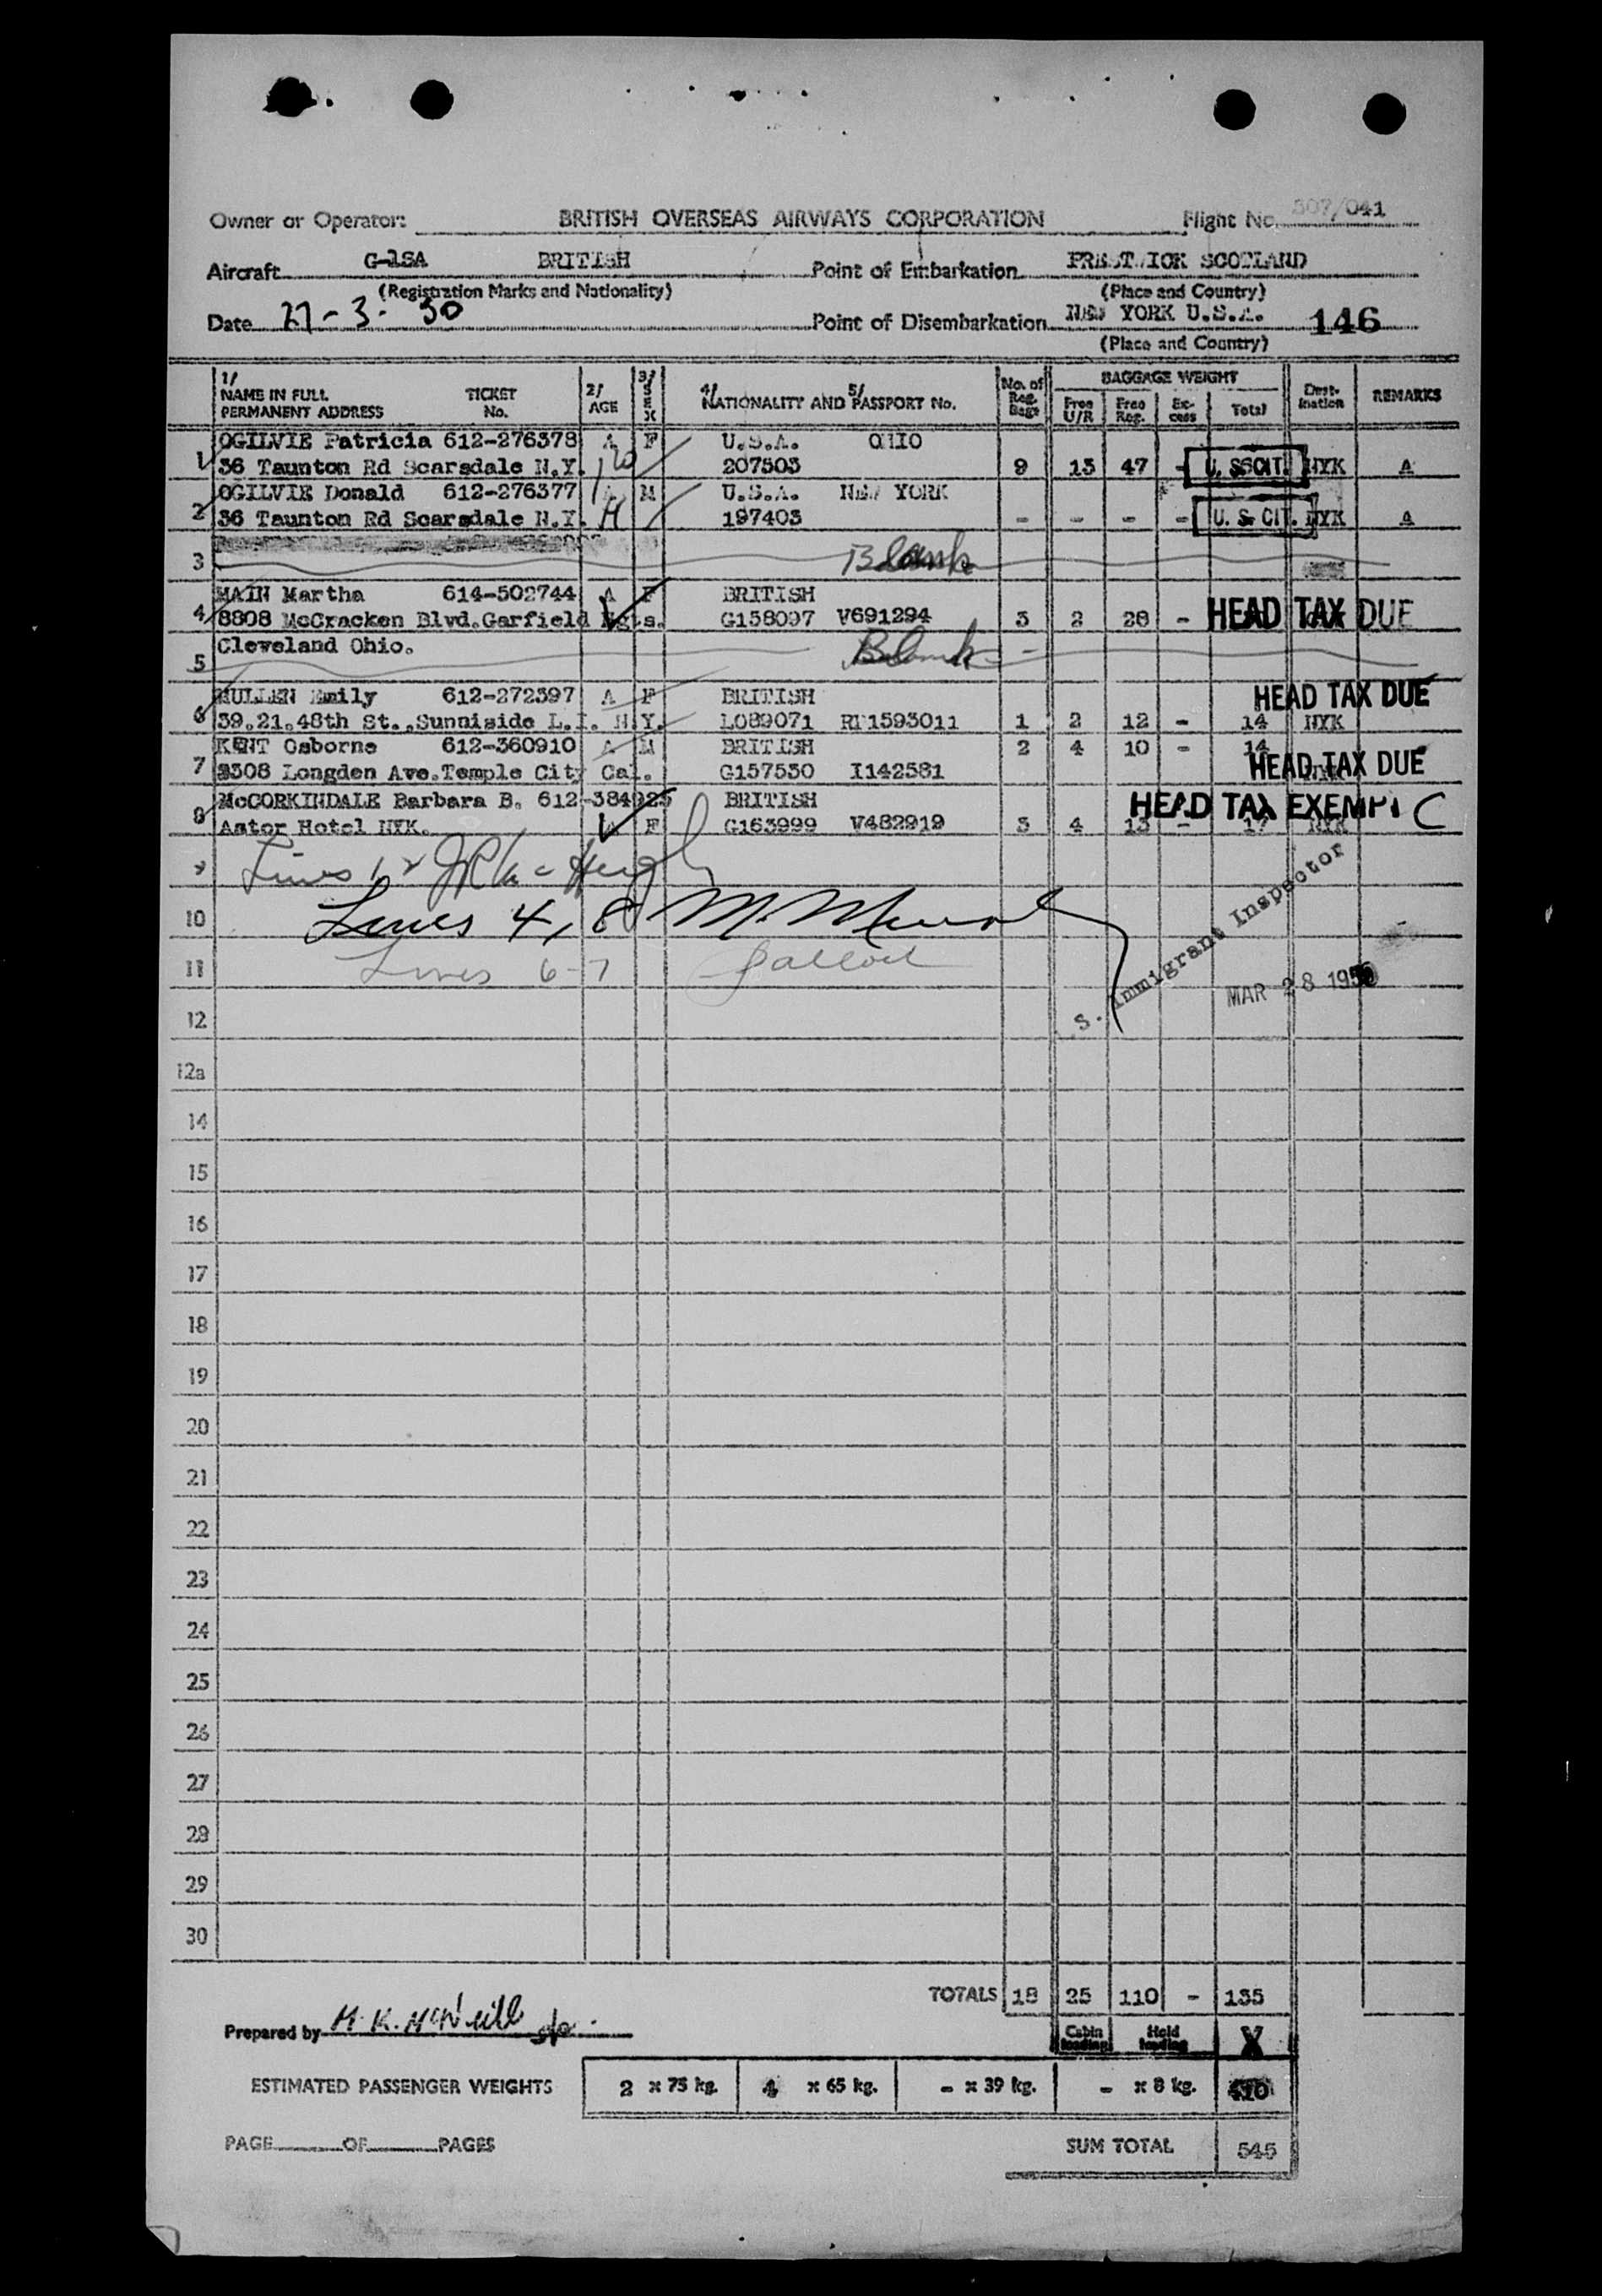 Owner or Operator: BRITISH OVERSEAS AIRWAYS CORPORATION Flight No. 507/041
Aircraft BRITISH Point of Embarkation PRESTWICK SCOTLAND
(Registration Marks and Nationality) (Place and Country)
Date 27-3-50 Point of Disembarkation NEW YORK U.S.A. 146
(Place and Country)
1/ NAME IN FULL PERMANENT ADDRESS TICKET No. 2/ AGE 3/ SEX 4/ NATIONALITY AND 5/ PASSPORT No. No. of Reg. Bags BAGGAGE WEIGHT Free U/R Free Reg. Excess Total Destination REMARKS
OGILVIE Patricia 612-276378 A F U.S.A. OHIO
1 36 Taunton Rd Scarsdale N.Y. 207503 9 13 47 - U. S. CIT. NYK A
OGILVIE Donald 612-276377 A M U.S.A. NEW YORK
2 36 Taunton Rd Scarsdale N.Y. 197403 - - - - U. S. CIT. NYK A
3 Blank
MAIN Martha 614-502744 A F BRITISH
4 8808 McCracken Blvd.Garfield Hgts. G158097 V691294 3 2 28 - HEAD TAX DUE
Cleveland Ohio.
5 Blank -
MULLEN Emily 612-272397 A F BRITISH HEAD TAX DUE
6 39.21.48th St.,Sunniside L.I. N.Y. L089071 RP1593011 1 2 12 - 14 NYK
KENT Osborne 612-360910 A M BRITISH 2 4 10 - 14
7 Longden Ave.Temple City Cal. G157530 I142581 HEAD TAX DUE
McCORKINDALE Barbara B. 612-384925 BRITISH HEAD TAX EXEMPT C
8 Astor Hotel NYK. A F G163999 V482919 3 4 13 - 17 NYK
9 Lines 1, 2
10 Lines 4, 8 M.
11 Lines 6-7
S. Immigrant Inspector
MAR 28 1950
12
12a
14
15
16
17
18
19
20
21
22
23
24
25
26
27
28
29
30
TOTALS 18 25 110 - 135
Prepared by M. K. McNeill
Cabin loading Hold loading X
ESTIMATED PASSENGER WEIGHTS 2 x 75 kg. 4 x 65 kg. - x 39 kg. - x 8 kg. 410
PAGE OF PAGES SUM TOTAL 545